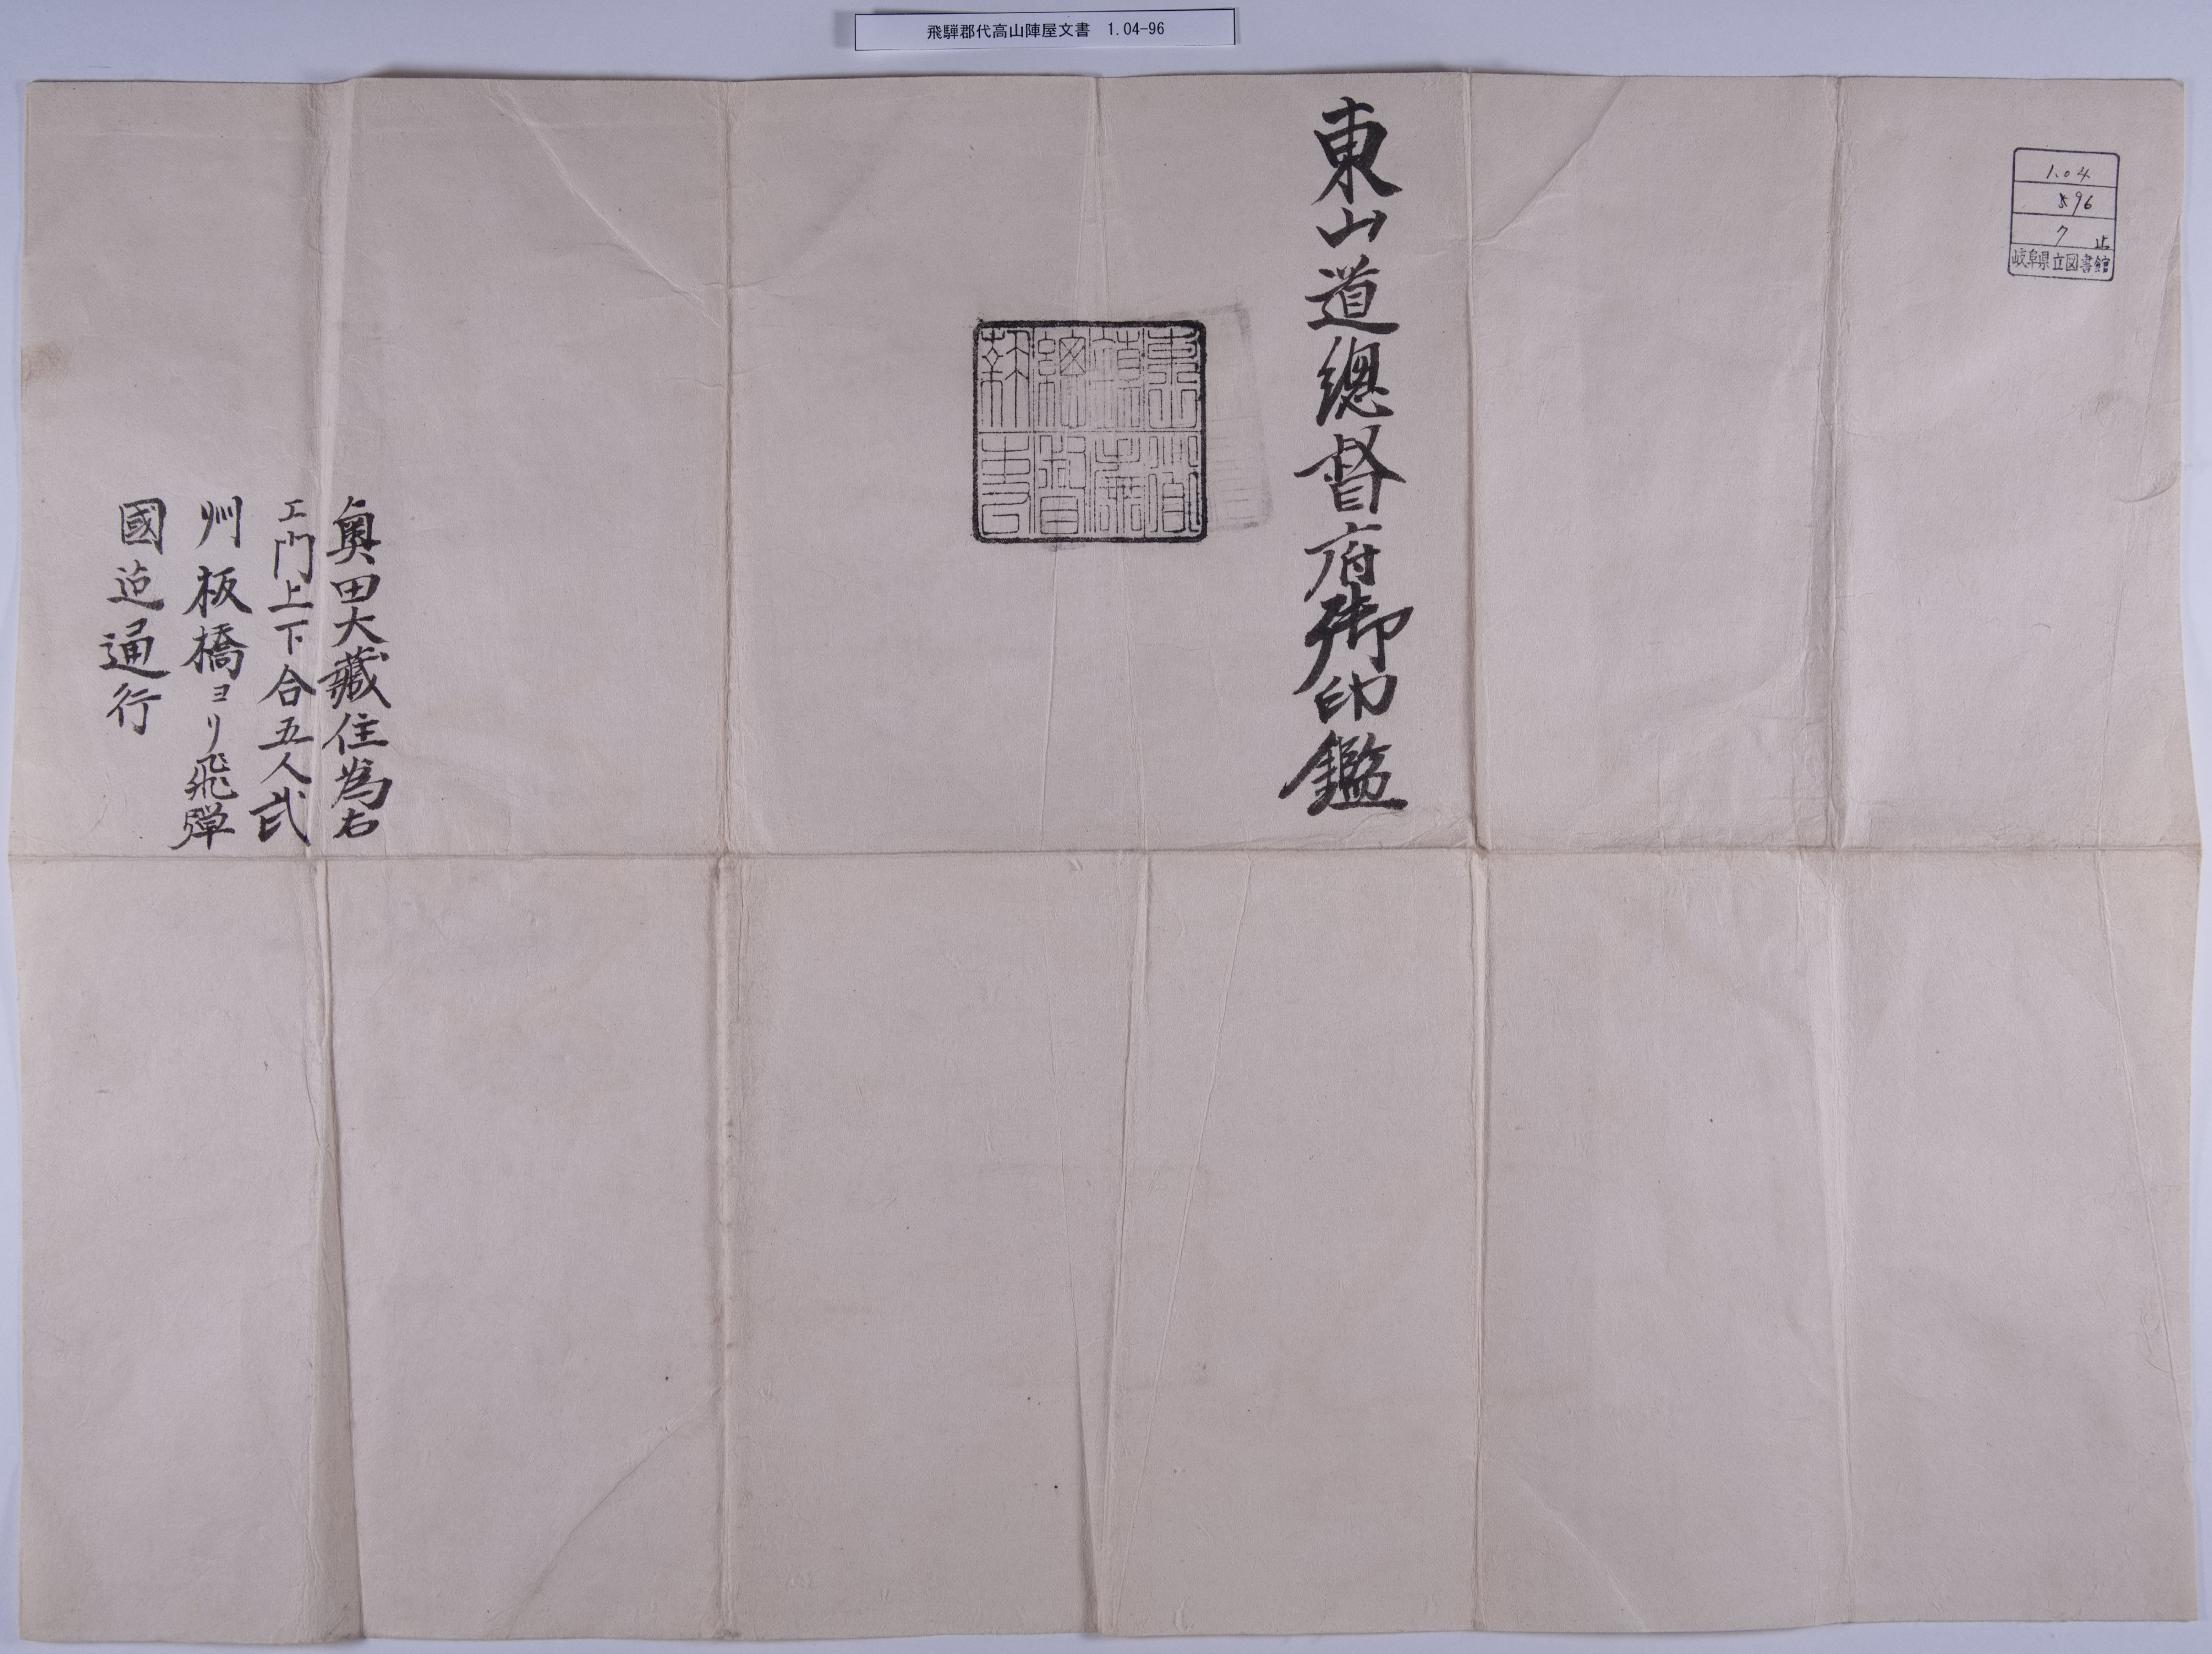 飛騨郡代高山陣屋文書　1.04-96
1.04
96
7 止
岐阜県立図書館
東山道總督府御印鑑
奥田大藏住為右
エ門上下合五人武
州板橋ヨリ飛彈
國迠通行